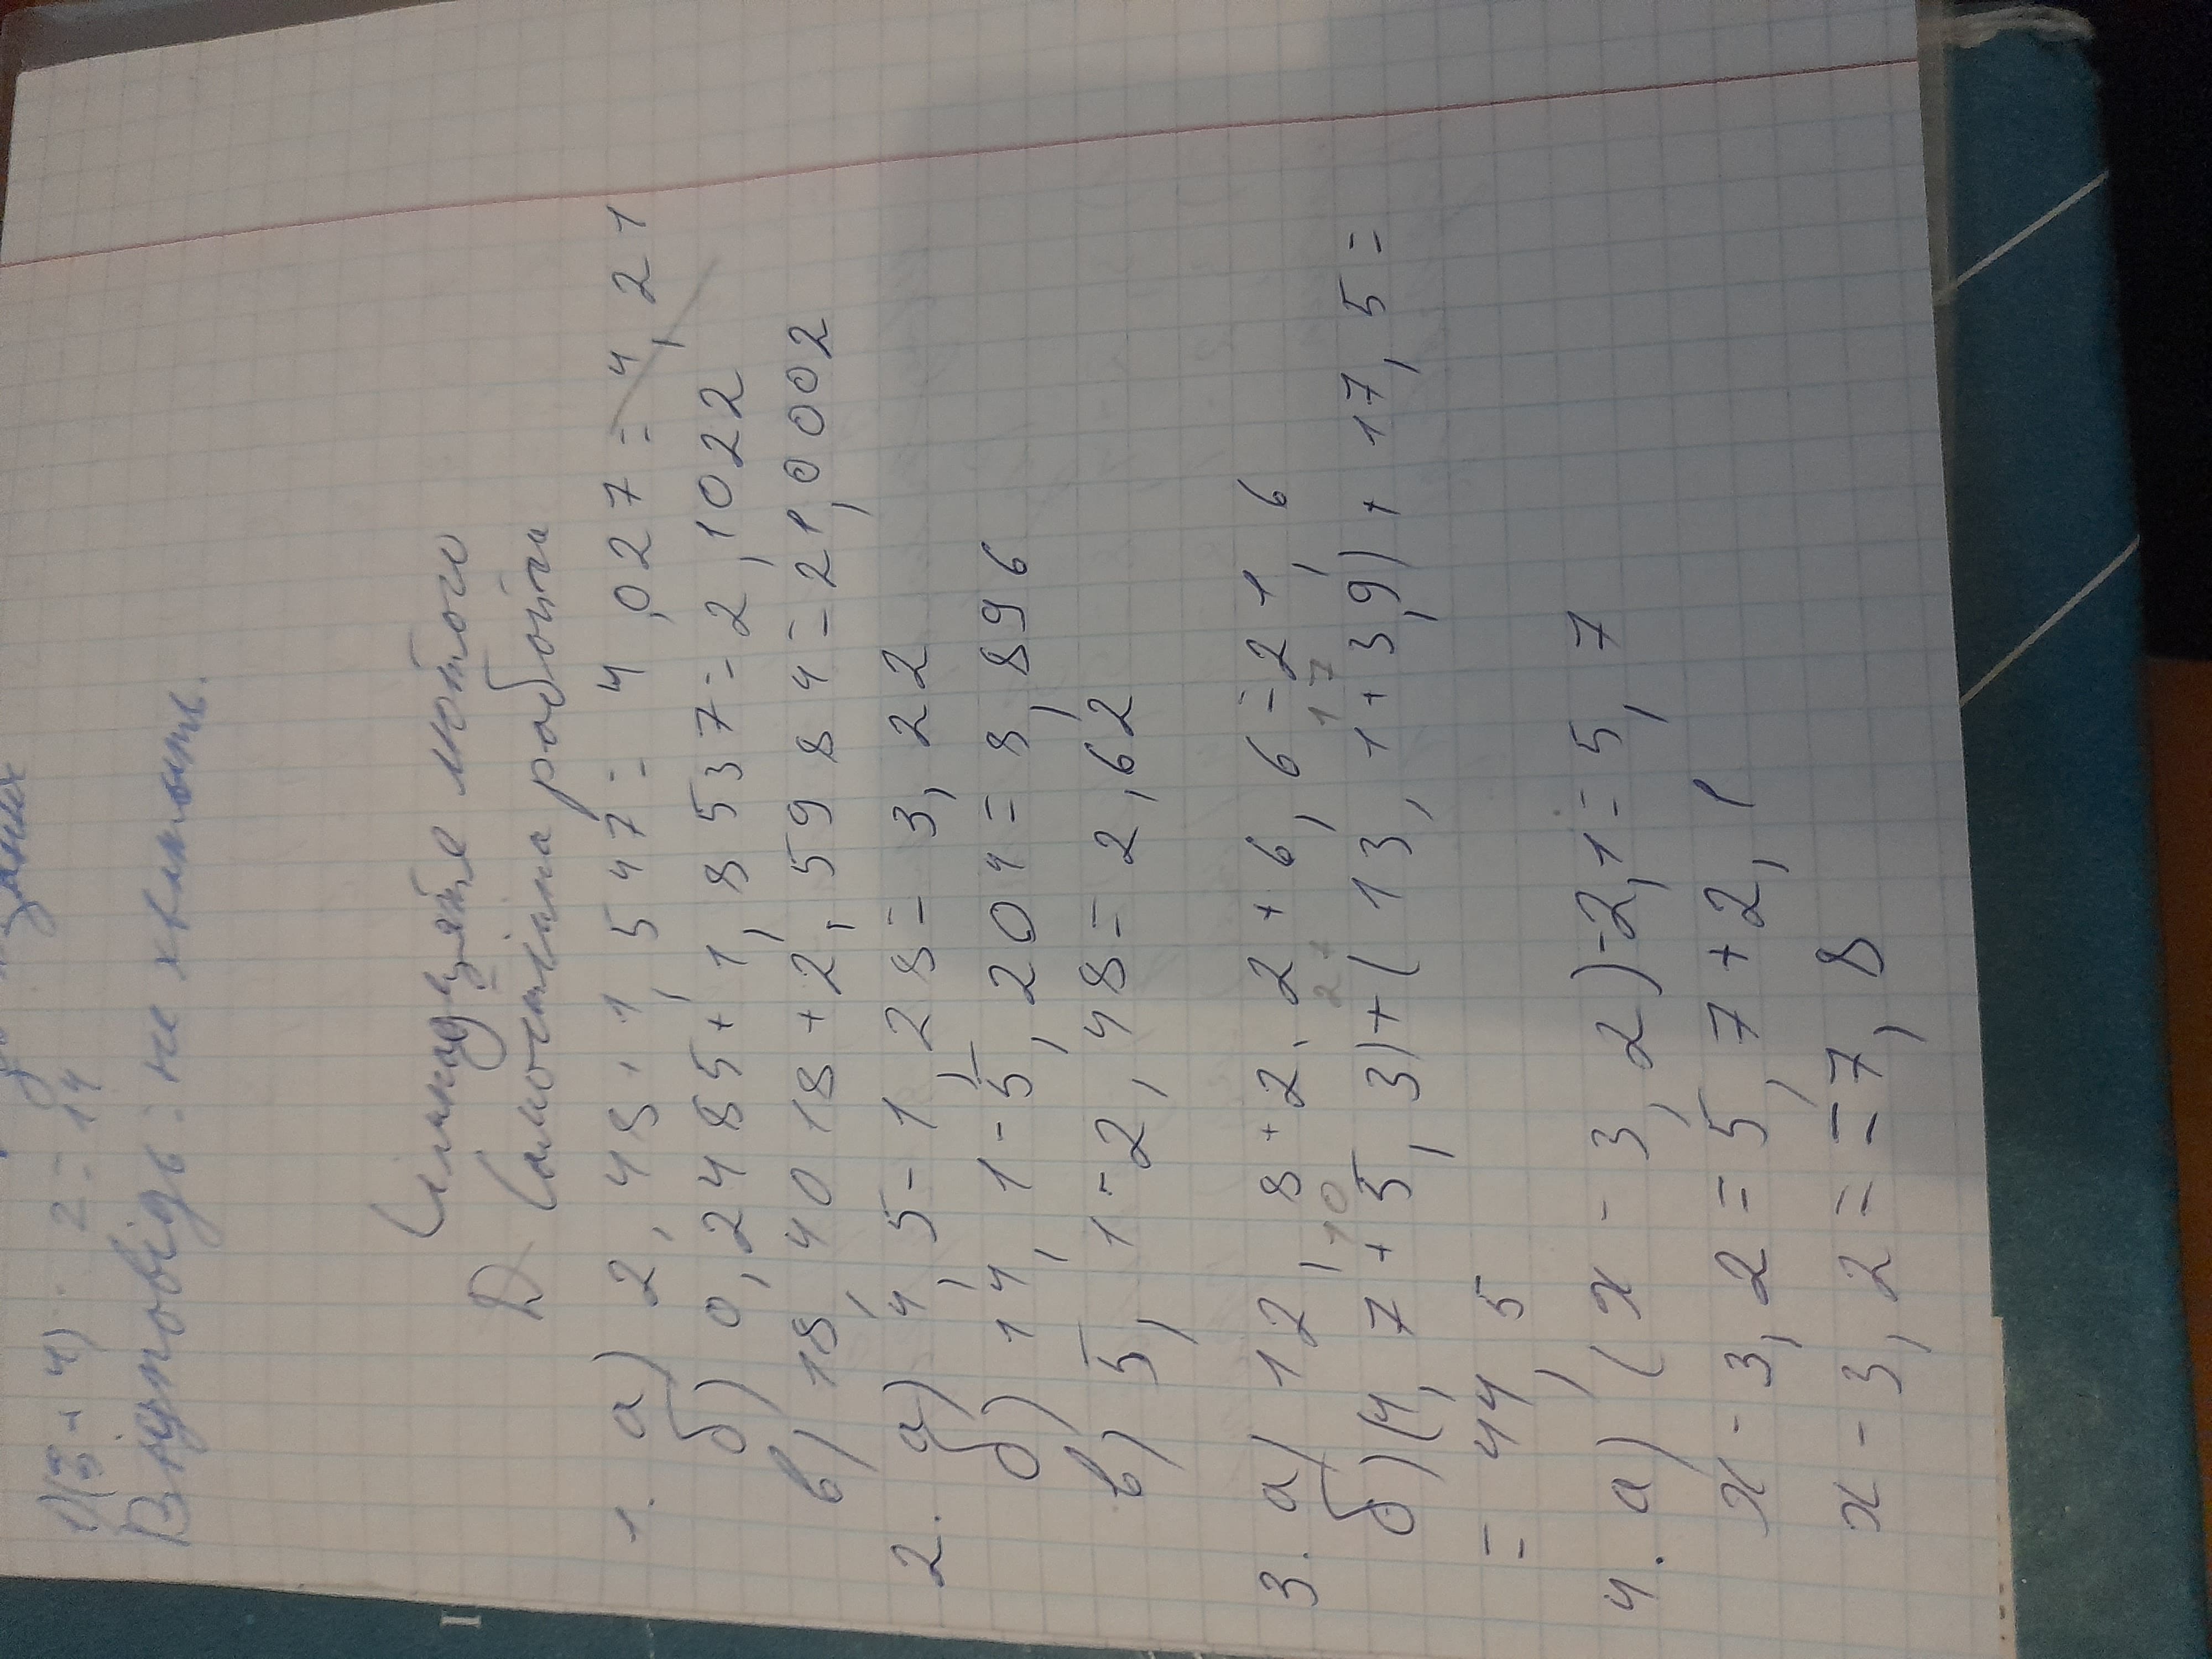 1)(3+4)·2=14
Відповідь: не хватить.
Сімнадцяте лютого
Самостійна робота
1. а) 2,48+1,547=4,027=4,21
б) 0,2485+1,8537=2,1022
в) 18,4018+2,5984=21,0002
2. а) 4,5-1,28=3,22
б) 14,1-5,204=8,896
в) 5,1-2,48=2,62
3. а) 12,8+2,2+6,6=21,6
10 17
б) (4,7+5,3)+(13,1+3,9)+17,5=
=44,5
4. а) (x-3,2)-2,1=5,7
x-3,2=5,7+2,1
x-3,2==7,8